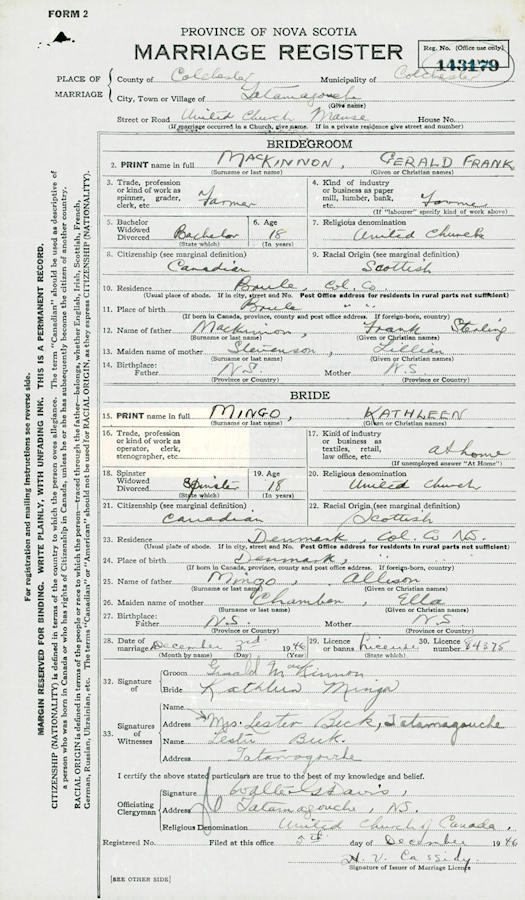 FORM 2
PROVINCE OF NOVA SCOTIA
MARRIAGE REGISTER
Reg. No. (Office use only)
143179
PLACE OF MARRIAGE
County of Colchester Municipality of Colchester
City, Town or Village of Tatamagouche
(Give name)
Street or Road United Church Manse House No.
(If marriage occurred in a Church, give name. If in a private residence give street and number)
BRIDEGROOM
2. PRINT name in full MACKINNON, GERALD FRANK
(Surname or last name) (Given or Christian names)
3. Trade, profession or kind of work as spinner, grader, clerk, etc. Farmer
4. Kind of industry or business as paper mill, lumber, bank, etc.
(If "labourer" specify kind of work above)
5. Bachelor Widowed Divorced Bachelor
(State which)
6. Age 18
(In years)
7. Religious denomination United Church
8. Citizenship (see marginal definition) Canadian
9. Racial Origin (see marginal definition) Scottish
10. Residence Brule, Col. Co.
(Usual place of abode. If in city, street and No. Post Office address for residents in rural parts not sufficient)
11. Place of birth Brule " "
(If born in Canada, province, county and post office address. If foreign-born, country)
12. Name of father MacKinnon, Frank Sterling
(Surname or last name) (Given or Christian names)
13. Maiden name of mother Stevenson, Lillian
(Surname or last name) (Given or Christian names)
14. Birthplace: Father N.S. Mother N.S.
(Province or Country) (Province or Country)
BRIDE
15. PRINT name in full MINGO, KATHLEEN
(Surname or last name) (Given or Christian names)
16. Trade, profession or kind of work as operator, clerk, stenographer, etc.
17. Kind of industry or business as textiles, retail, law office, etc. at home
(If unemployed answer "At Home")
18. Spinster Widowed Divorced Spinster
(State which)
19. Age 18
(In years)
20. Religious denomination United Church
21. Citizenship (see marginal definition) Canadian
22. Racial Origin (see marginal definition) Scottish
23. Residence Denmark, Col. Co. N.S.
(Usual place of abode. If in city, street and No. Post Office address for residents in rural parts not sufficient)
24. Place of birth Denmark,
(If born in Canada, province, county and post office address. If foreign-born, country)
25. Name of father Mingo, Allison
(Surname or last name) (Given or Christian names)
26. Maiden name of mother Ella
(Surname or last name) (Given or Christian names)
27. Birthplace: Father N.S. Mother N.S.
(Province or Country) (Province or Country)
28. Date of marriage December 3rd 1946
(Month by name) (Day) (Year)
29. Licence or banns License
(State which)
30. Licence number 84375
32. Signature of
Groom Gerald MacKinnon
Bride Kathleen Mingo
33. Signatures of Witnesses
Name
Address Mrs. Lester Buck, Tatamagouche
Name Lester Buck.
Address Tatamagouche
I certify the above stated particulars are true to the best of my knowledge and belief.
Officiating Clergyman
Signature Walter Davis,
Address Tatamagouche, N.S.
Religious Denomination United Church of Canada,
Registered No. Filed at this office 5th day of December 1946
H. V. Cassidy.
Signature of Issuer of Marriage Licence
[SEE OTHER SIDE]
For registration and mailing instructions see reverse side.
MARGIN RESERVED FOR BINDING. WRITE PLAINLY, WITH UNFADING INK. THIS IS A PERMANENT RECORD.
CITIZENSHIP (NATIONALITY) is defined in terms of the country to which the person owes allegiance. The term "Canadian" should be used as descriptive of
a person who was born in Canada or who has rights of Citizenship in Canada, unless he or she has subsequently become the citizen of another country.
RACIAL ORIGIN is defined in terms of the people or race to which the person—traced through the father—belongs, whether English, Irish, Scottish, French,
German, Russian, Ukrainian, etc. The terms "Canadian" or "American" should not be used for RACIAL ORIGIN, as they express CITIZENSHIP (NATIONALITY).